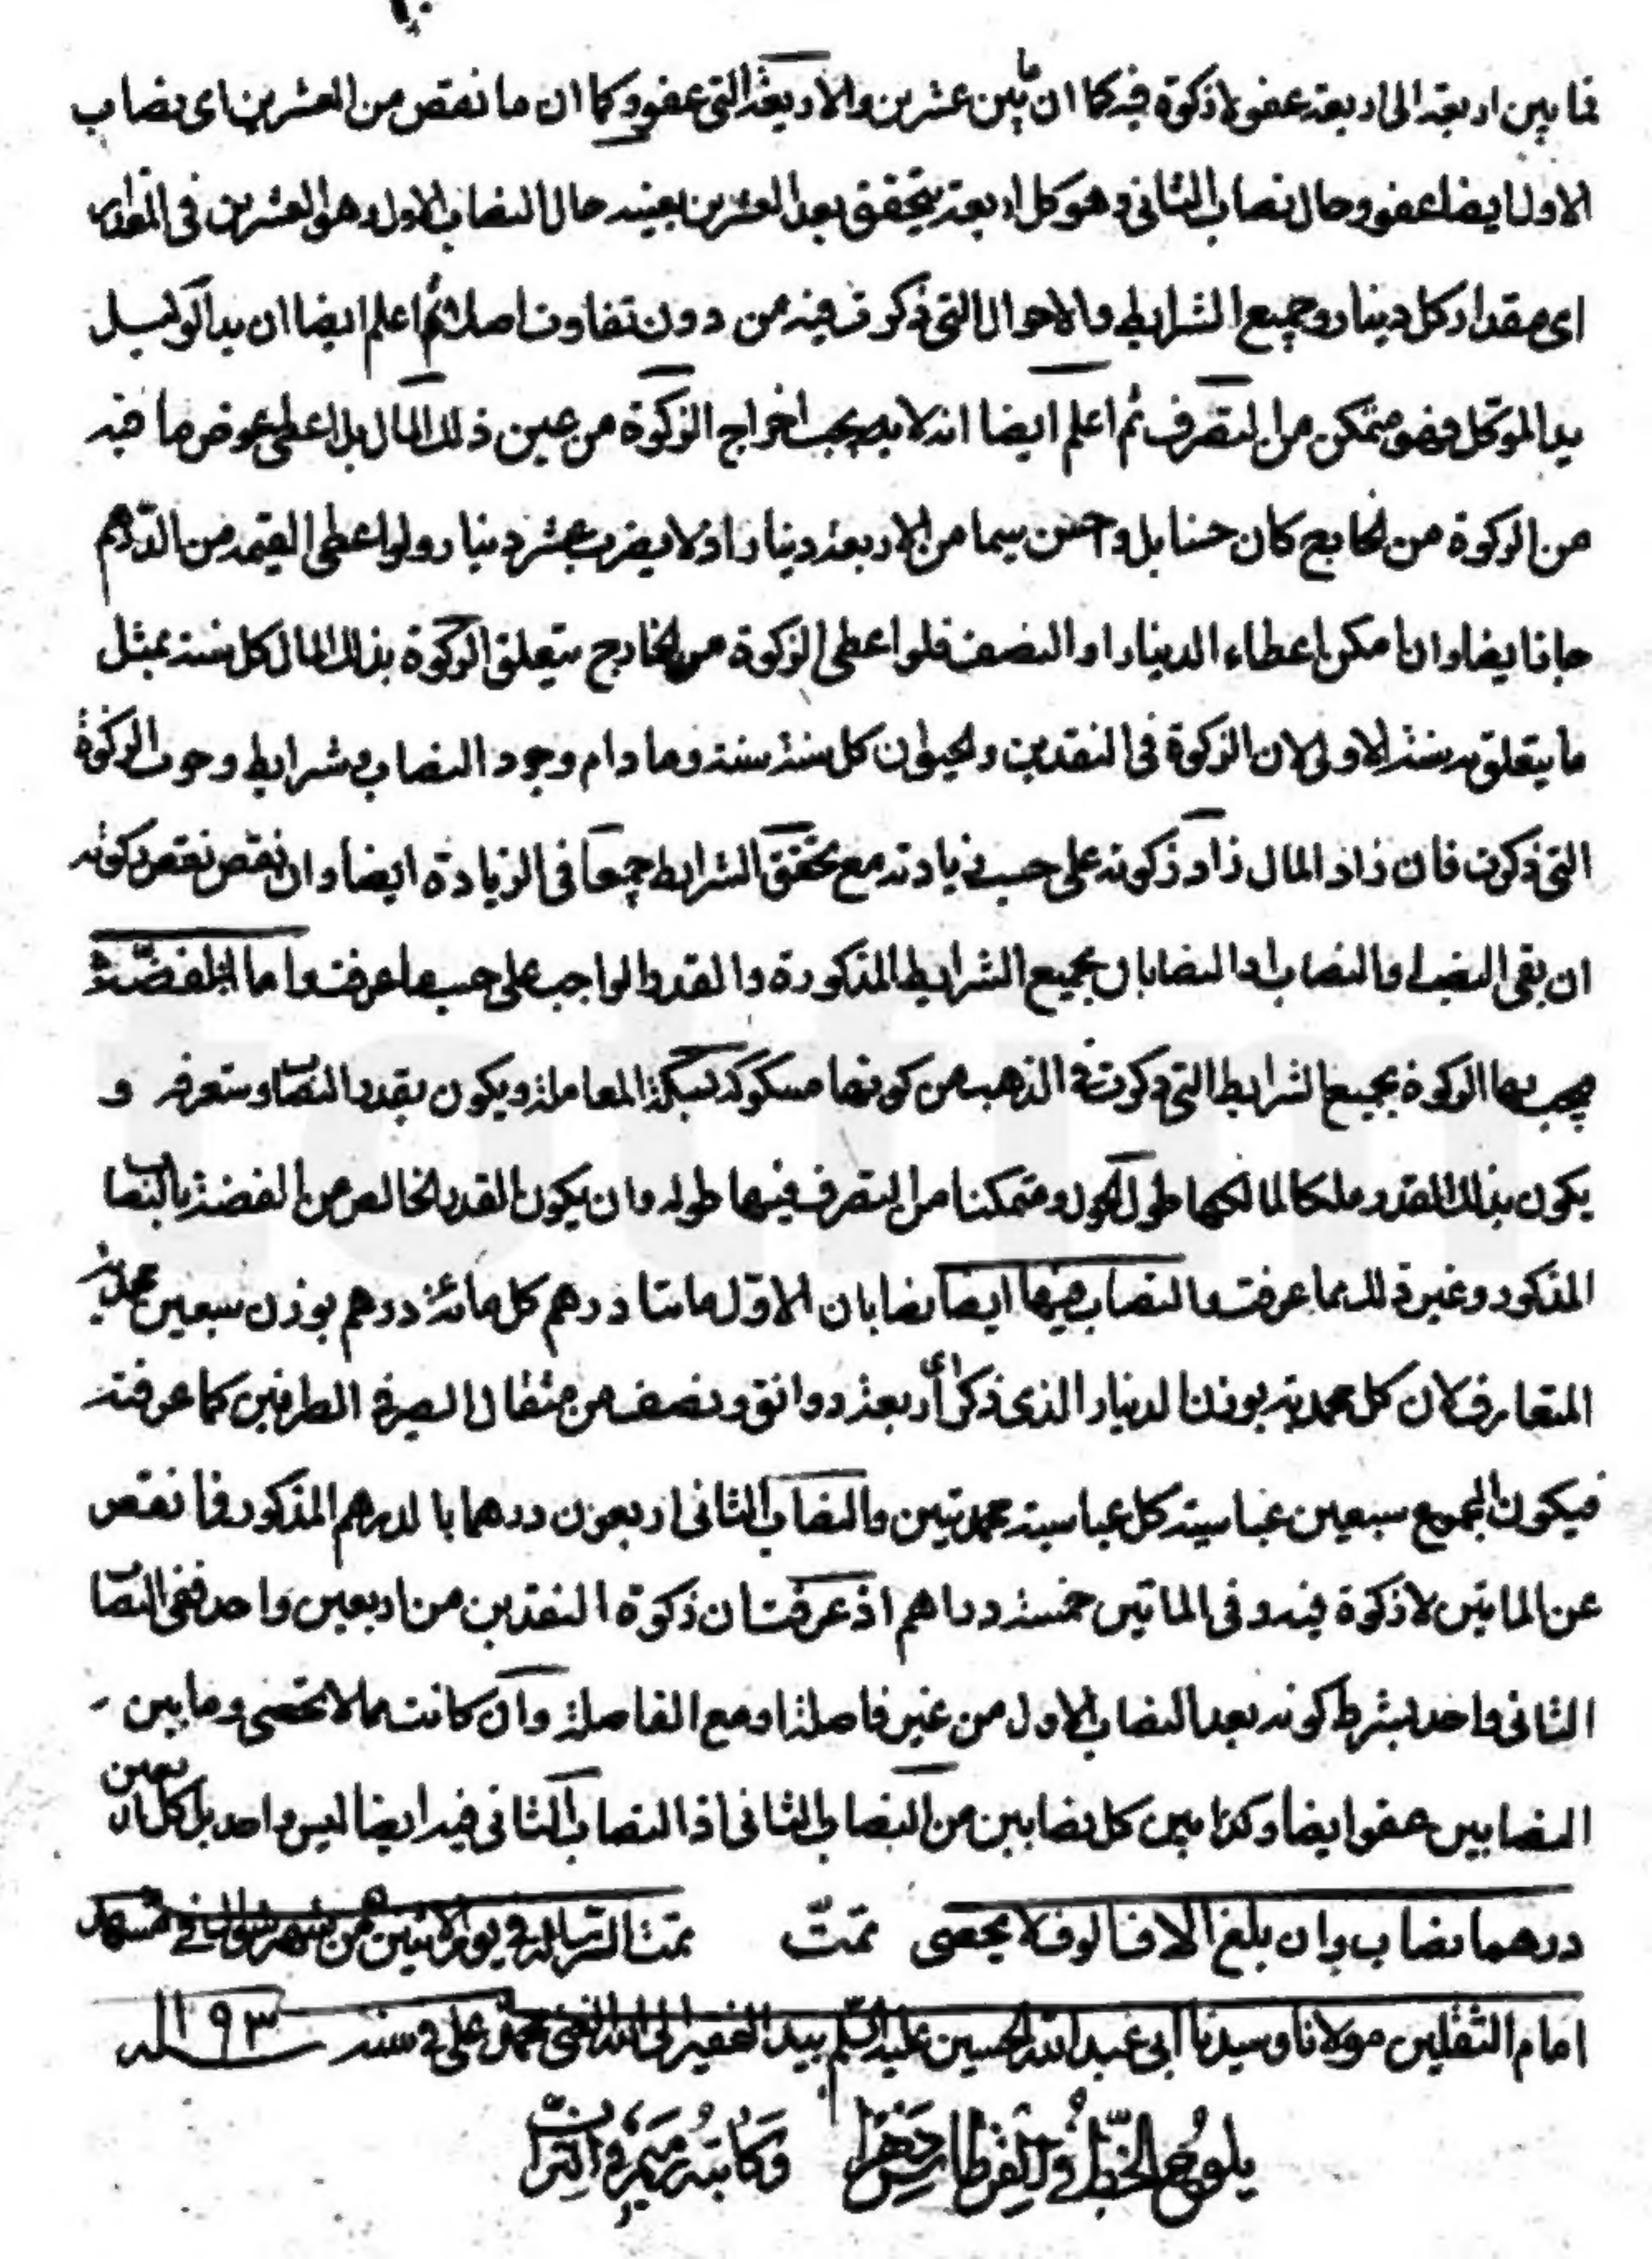 فما بين اربعة الى اربعة عفو لا زكوة فيه كما ان ما بين عشرين والاربعة التى عفو وكما ان ما نقص من العشرين اى نصاب
الاول ايضا عفو وحال نصاب الثانى وهو كل اربعة يتحقق بعد العشرين بعينه حال النصاب الاول وهو العشرين فى المقدار
اى مقدار كل دينار وجميع الشرايط والاحوال التى ذكرت فيه من دون تفاوت اصلا ثم اعلم ايضا ان يد الوكيل
يد الموكل فهو متمكن من التصرف ثم اعلم ايضا انه لا يجب اخراج الزكوة من عين ذلك المال بل اعطى عوض ما فيه
من الزكوة من الخارج كان حسنا بل واحسن سيما من الاربعة دينارا اذ لا يضرب عشر دينار ولو اعطى القيمة من الدرهم
جاز ايضا وان امكن اعطاء الدينار او النصف فلو اعطى الزكوة من الخارج يتعلق الزكوة بذلك المال كل سنة بمثل
ما يتعلق به سنة الاولى لان الزكوة فى النقدين والحيوان كل سنة سنة وما دام وجود النصاب وشرايط وجوب الزكوة
التى ذكرت فان زاد المال زاد زكوته على حسب زيادته مع تحقق الشرايط جميعا فى الزيادة ايضا وان نقص نقص زكوته
ان بقى النصاب او النصابان بجميع الشرايط المذكورة والقدر الواجب على حسب ما عرفت واما الفضة
يجب بها الزكوة بجميع الشرايط التى ذكرت فى الذهب من كونها مسكوكة بسكة المعاملة ويكون بقدر النصاب وستعرفه و
يكون بذلك القدر ملكا لمالكها طول الحول ومتمكنا من التصرف فيها طوله وان يكون القدر الخالص من الفضة بالنصاب
المذكور وغير ذلك مما عرفت والنصاب فيها ايضا نصابان الاول مائتا درهم كل مائة درهم بوزن سبعين محمدية
المتعارف لان كل محمدية بوزن الدينار الذى ذكر اى اربعة دوانق ونصف من مثقال الصيرفى الطرفين كما عرفته
فيكون المجموع سبعين عباسية كل عباسية محمديتين والنصاب الثانى اربعون درهما بالدرهم المذكور فما نقص
عن الماتين لا زكوة فيه وفى الماتين خمسة دراهم اذ عرفت ان زكوة النقدين من اربعين واحد ففى النصاب
الثانى واحد بشرط كونه بعد النصاب الاول من غير فاصلة او مع الفاصلة وان كانت مما لا تحصى وما بين
النصابين عفو ايضا وكذا بين كل نصابين من النصاب الثانى اذ النصاب الثانى فيه ايضا ليس واحد بل كل اربعين
درهما نصاب وان بلغ الالاف الوف لا يحصى تمت تمت الرسالة فى يوم الاثنين من شهر شوال فى مشهد
امام الثقلين مولانا وسيدنا ابى عبد الله الحسين عليه السلام بيد الفقير الى الله الغنى محمد على فى سنة ١١٩٣
يلوح الخط فى القرطاس دهرا وكاتبه رميم فى التراب